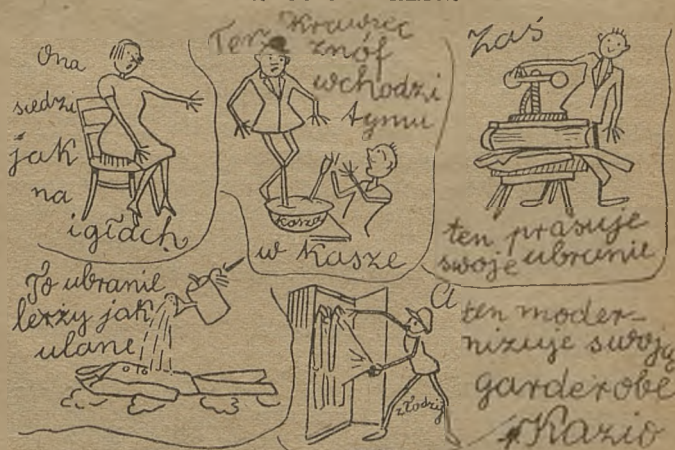 Ona
siedzi
jak
na
igłach
Terz Krawiec
znóf
wchodzi
tymu
kasza
w Kasze
Zaś
ten prasuje
swoje ubranie
To ubranie
lerzy jak
ulane
A
ten moder-
nizuje swoją
garderobe
złodzij
Kazio